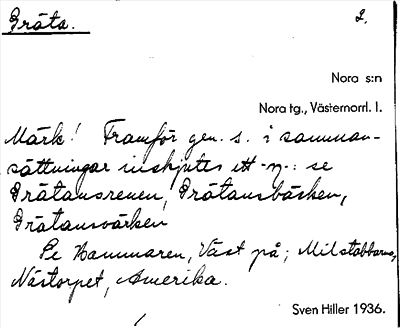 Gräta. 2.
Nora s:n
Nora tg., Västernorrl. l.
Märk! Framför gen. s. i samman-
sättningar inskjutes ett -n-: se
Grätansrenen, Grätansbäcken,
Grätansvärken
Se Hammaren, Väst på; Milstabbarna,
Nästorpet, Amerika.
Sven Hiller 1936.